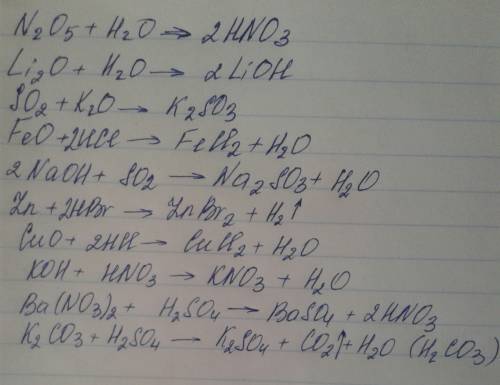 N₂O₅ + H₂O → 2HNO₃
Li₂O + H₂O → 2LiOH
SO₂ + K₂O → K₂SO₃
FeO + 2HCl → FeCl₂ + H₂O
2NaOH + SO₂ → Na₂SO₃ + H₂O
Zn + 2HBr → ZnBr₂ + H₂↑
CuO + 2HCl → CuCl₂ + H₂O
KOH + HNO₃ → KNO₃ + H₂O
Ba(NO₃)₂ + H₂SO₄ → BaSO₄ + 2HNO₃
K₂CO₃ + H₂SO₄ → K₂SO₄ + CO₂↑ + H₂O (H₂CO₃)